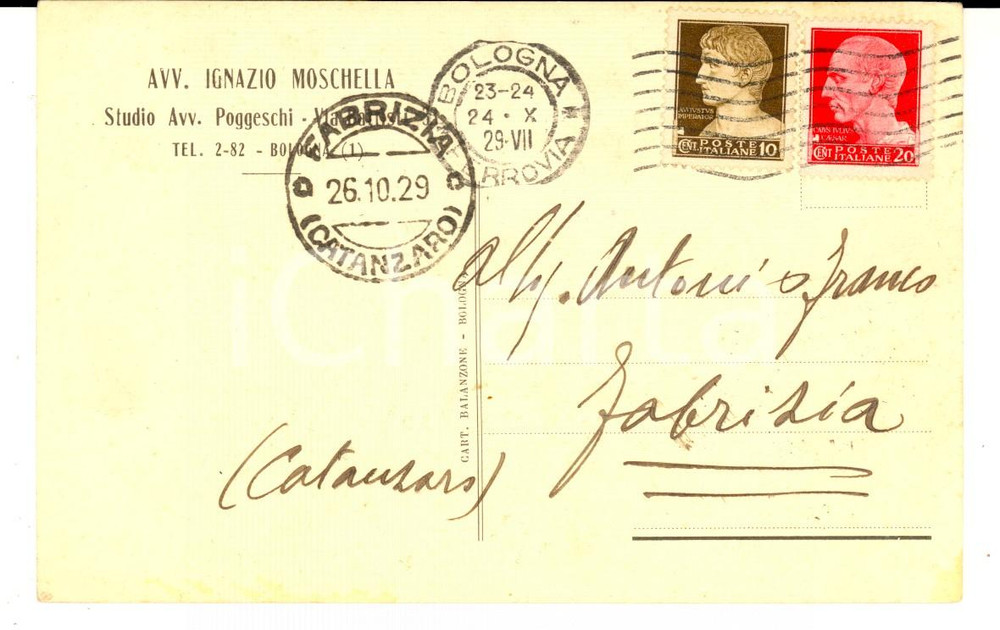 AVV. IGNAZIO MOSCHELLA
Studio Avv. Poggeschi - Via
TEL. 2-82 - BOLOGNA (1)
FABRIZIA
26.10.29
(CATANZARO)
BOLOGNA
23-24
24 · X
29·VII
FERROVIA
AVGVSTVS
IMPERATOR
CENT POSTE ITALIANE 10
CAIVS IVLIVS
CAESAR
CENT POSTE ITALIANE 20
CART. BALANZONE - BOLOGNA
Franco
Fabrizia
(Catanzaro)
iCharta